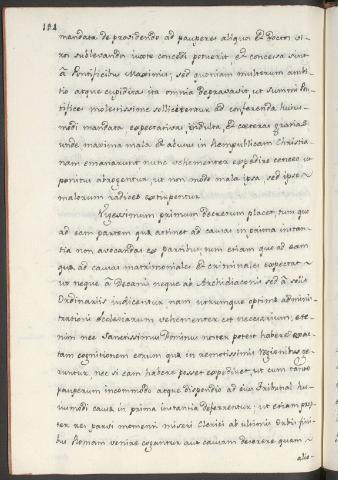 184
mandata de providendo ad pauperes aliquos et Doctos vi-
ros sublevandos iuxte concedi potuerit et concessa sint
à Pontificibus Maximis; sed quoniam multorum ambi-
tio atque cupiditas ita omnia depravavit, ut summi Pon-
tifices molestissime sollicitentur ad conferenda huius-
modi mandata expectativas, indulta, et cæteras gratias
unde maxima mala et abusus in Rempublicam Christia-
nam emanarunt nunc vehementer expedire censeo ut
penitus abrogentur, ut non modo mala ipsa sed ipsæ
malorum radices extirpentur.
Vigessimum primum decretum placet, tum quo
ad eam partem quæ attinet ad causas in prima instan-
tia non avocandas ex partibus tum etiam quo ad eam
quæ ad causas matrimoniales et criminales expectat
ut neque à Decanis neque ab Archidiaconis sed à suis
Ordinariis iudicentur nam utrumque optimæ adminis-
trationi Ecclesiarum vehementer est necessarium; ete-
nim nec Sanctissimus Dominus noster potest habere exac-
tam cognitionem earum quæ in remotissimis Regionibus ge-
runtur nec si eam habere posset expediret, ut cum tanto
pauperum incommodo atque dispendio ad eius Tribunal hu-
iusmodi causæ in prima instantia deferrentur; ut etiam prop-
ter rei parvi momenti miseri Clerici ab ultimis Orbis fini-
bus Romam venire cogantur aut causam deserere quam
alio-